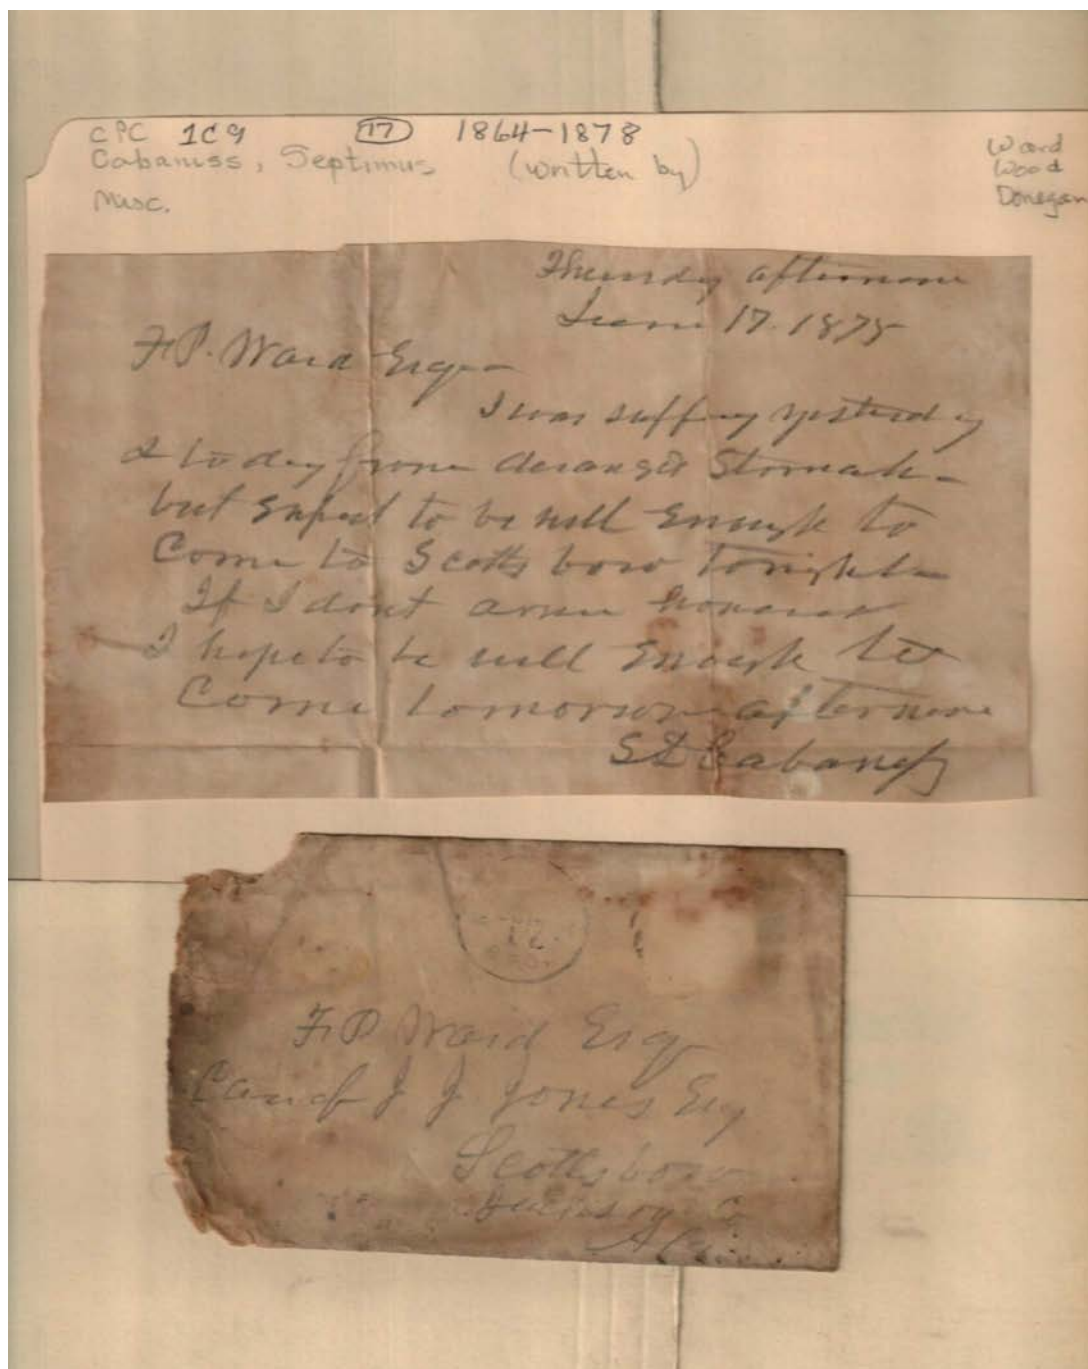 CPC 1C9 17 1864-1878
Cabaniss, Septimus (written by)
Misc.
Ward
Wood
Donegan
Thursdy afternoon
17. 1878
F.P. Ward Esq -
I was suffering yesterdy
& today from deranged Stomach -
but expect to be well enough to
Come to Scottsboro tonight -
If I dont
I hope to be well enough to
Come tomorrow afternoon
S D Cabaniss
17
F P Ward Esq
Care of J. J. Jones Esq
Scottsboro
Jackson Co
Ala